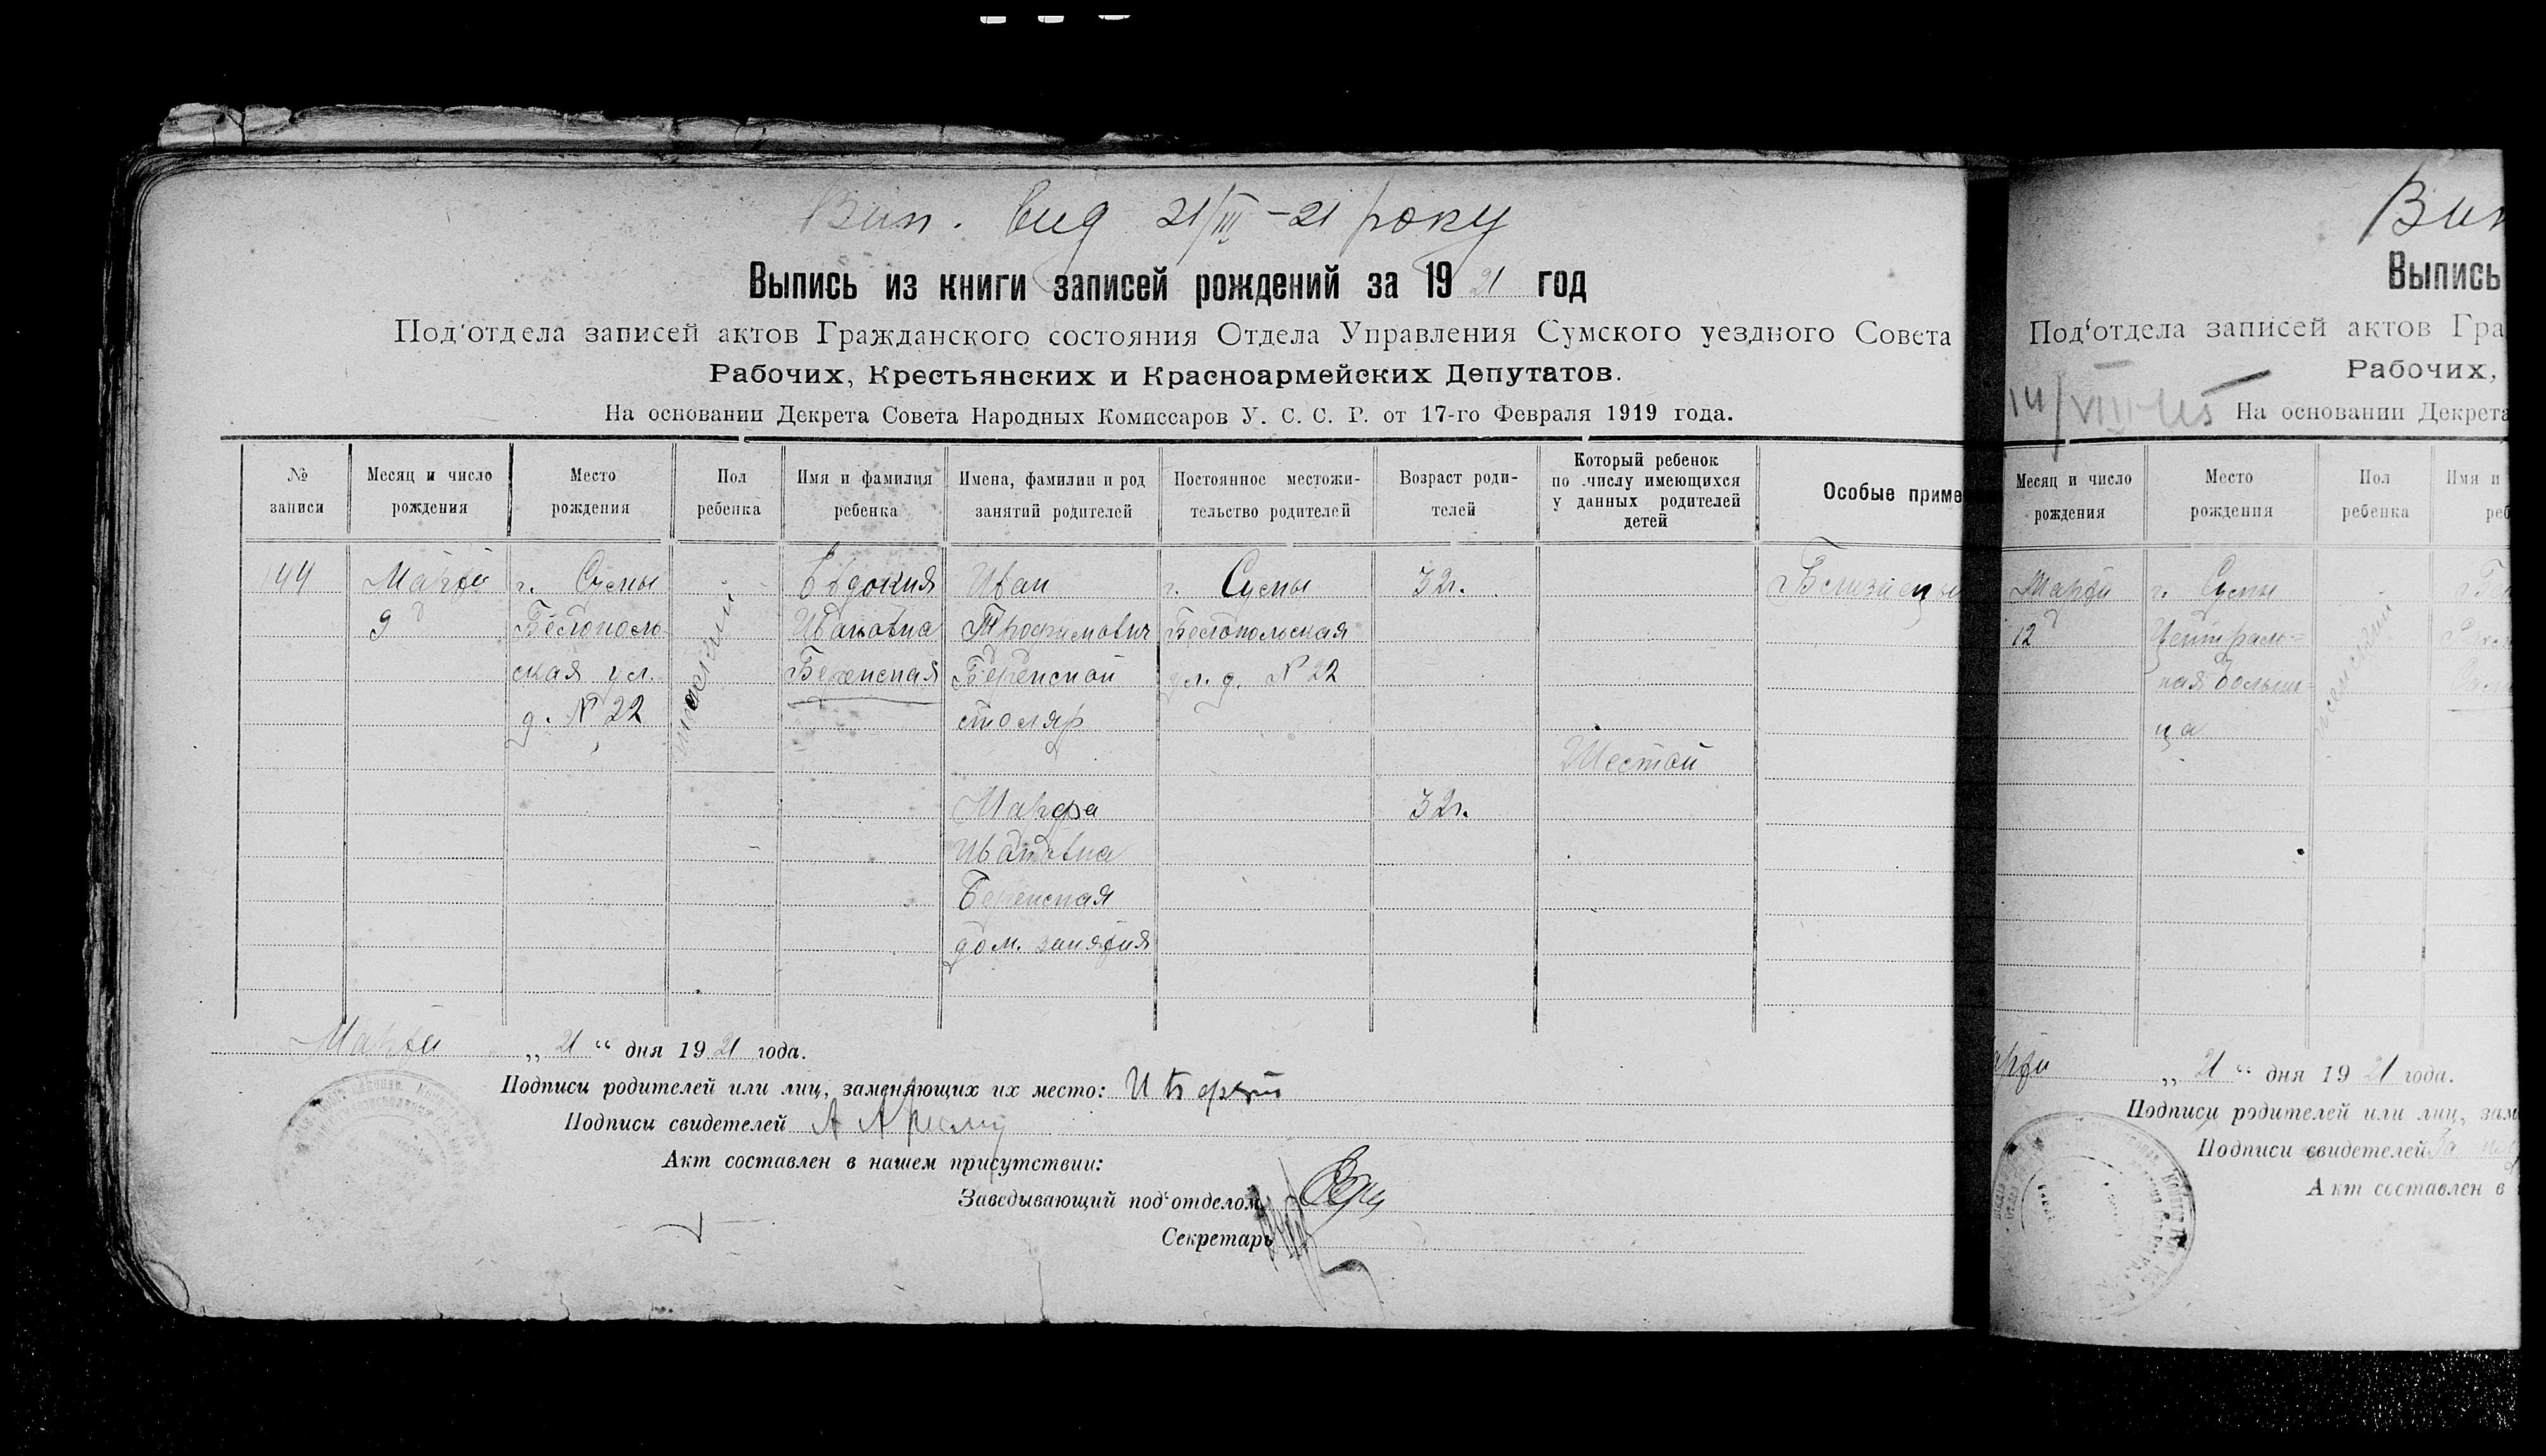 Вип. вид 21/III-21 року
Выпись из книги записей рождений за 1921 год
Под'отдела записей актов Гражданского состояния Отдела Управления Сумского уездного Совета
Рабочих, Крестьянских и Красноармейских Депутатов.
На основании Декрета Совета Народных Комиссаров У. С. С. Р. от 17-го Февраля 1919 года.
№ записи
Месяц и число рождения
Место рождения
Пол ребенка
Имя и фамилия ребенка
Имена, фамилии и род занятий родителей
Постоянное местожи-тельство родителей
Возраст роди-телей
Который ребенок по числу имеющихся у данных родителей детей
Особые приме
144
Марта
9
г. Сумы
Белополь-
ская ул.
д. № 22
женский
Евдокия
Ивановна
Иван
Трофимович
столяр
г. Сумы
Белопольская
ул. д. № 22
32г.
Близнецы
Шестой
Марфа
32г.
Ивановна
дом. занятия
Марта „21“ дня 1921 года.
Подписи родителей или лиц, заменяющих их место:
Подписи свидетелей
Акт составлен в нашем присутствии:
Заведывающий под'отделом
Секретарь
Вип
Выпись
Под'отдела записей актов Гра
Рабочих,
14/VIII-45
На основании Декрета
Месяц и число рождения
Место рождения
Пол ребенка
Имя и
реб
Марта
12
г. Сумы
Централь-
ная больни-
ца
женский
„21“ дня 1921 года.
Подписи родителей или лиц, зам
Подписи свидетелей За
Акт составлен в